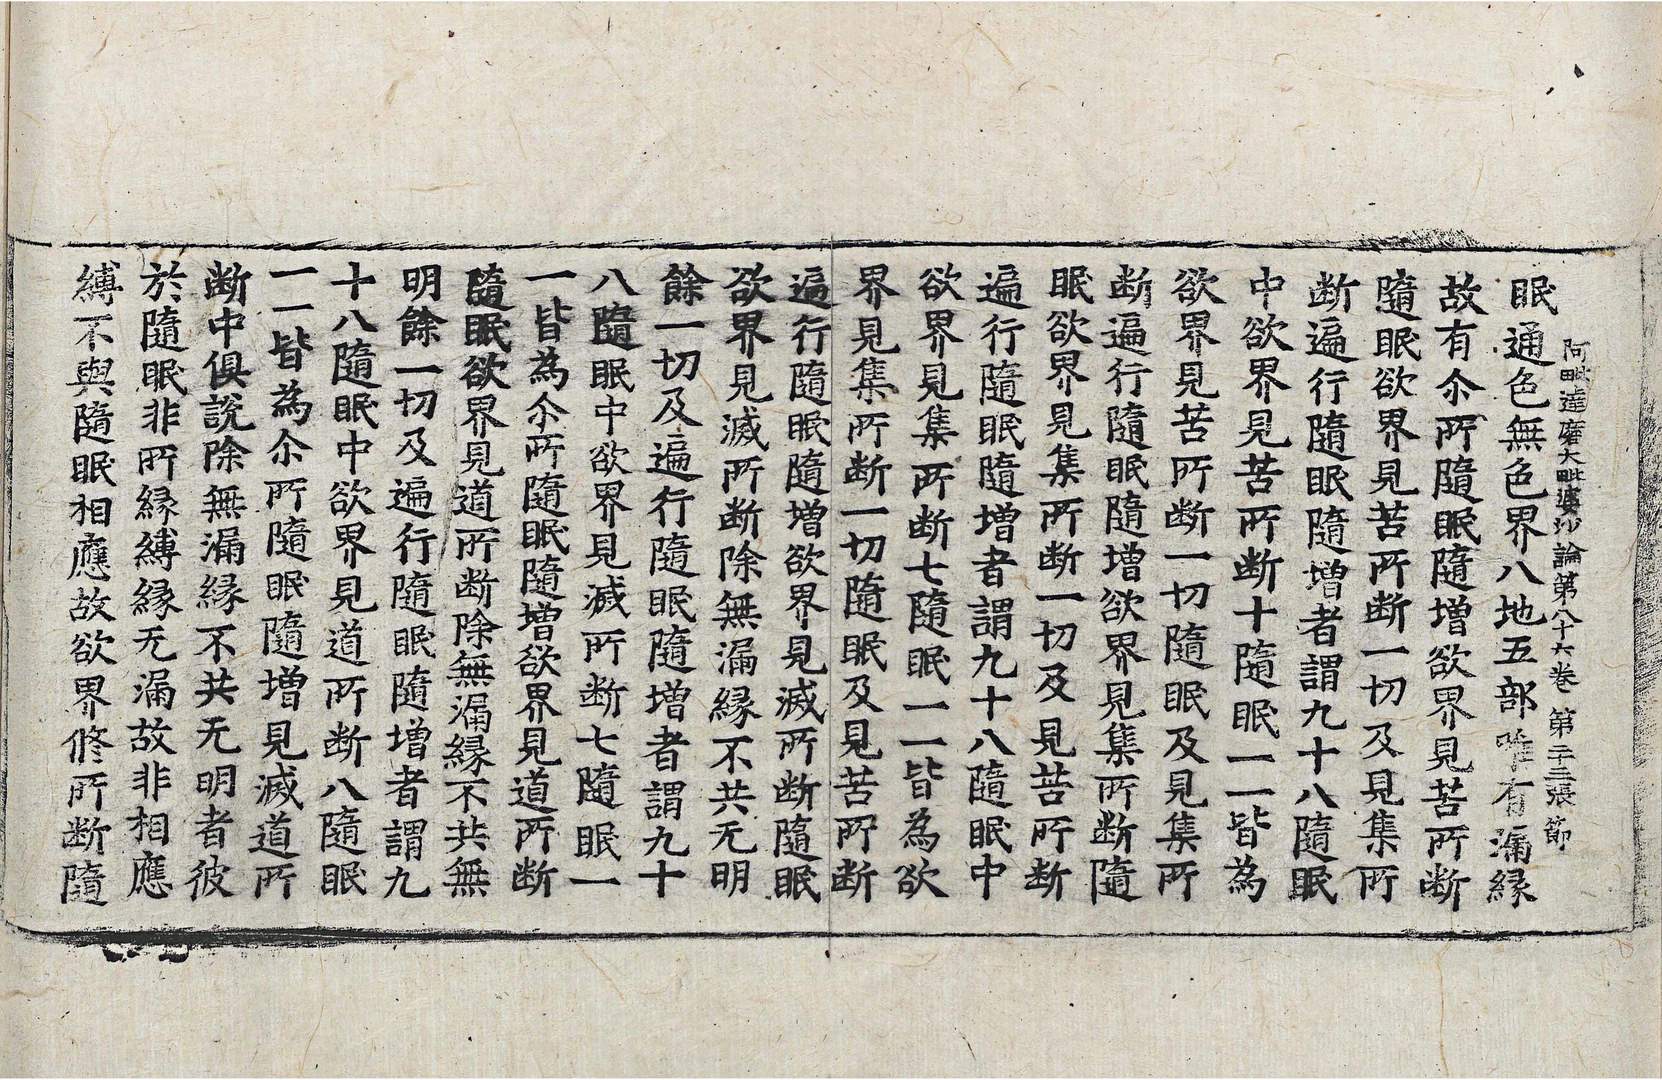 阿毗達磨大毗婆沙論第八十六卷 第二十三張 節
眠通色無色界八地五部唯有漏縁
故有尒所隨眠隨增欲界見苦所断
隨眠欲界見苦所断一切及見集所
断遍行隨眠隨增者謂九十八隨眠
中欲界見苦所断十隨眠一一皆為
欲界見苦所断一切隨眠及見集所
断遍行隨眠隨增欲界見集所断隨
眠欲界見集所断一切及見苦所断
遍行隨眠隨增者謂九十八隨眠中
欲界見集所断七隨眠一一皆為欲
界見集所断一切隨眠及見苦所断
遍行隨眠隨增欲界見滅所断隨眠
欲界見滅所断除無漏縁不共无明
餘一切及遍行隨眠隨增者謂九十
八隨眠中欲界見滅所断七隨眠一
一皆為尒所隨眠隨增欲界見道所断
隨眠欲界見道所断除無漏縁不共無
明餘一切及遍行隨眠隨增者謂九
十八隨眠中欲界見道所断八隨眠
一一皆為尒所隨眠隨增見滅道所
断中俱說除無漏縁不共无明者彼
於隨眠非所縁縛縁无漏故非相應
縛不與隨眠相應故欲界修所断隨